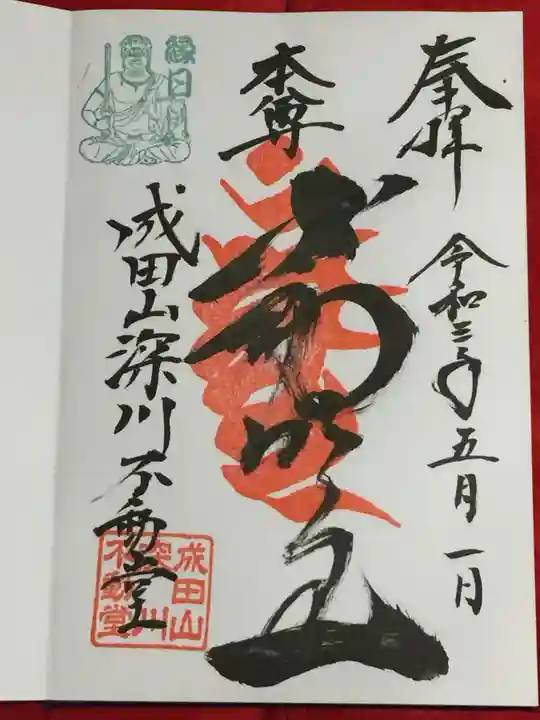 奉拝
令和三年五月一日
本尊
不動明王
成田山深川不動堂
縁日
成田山
深川
不動堂